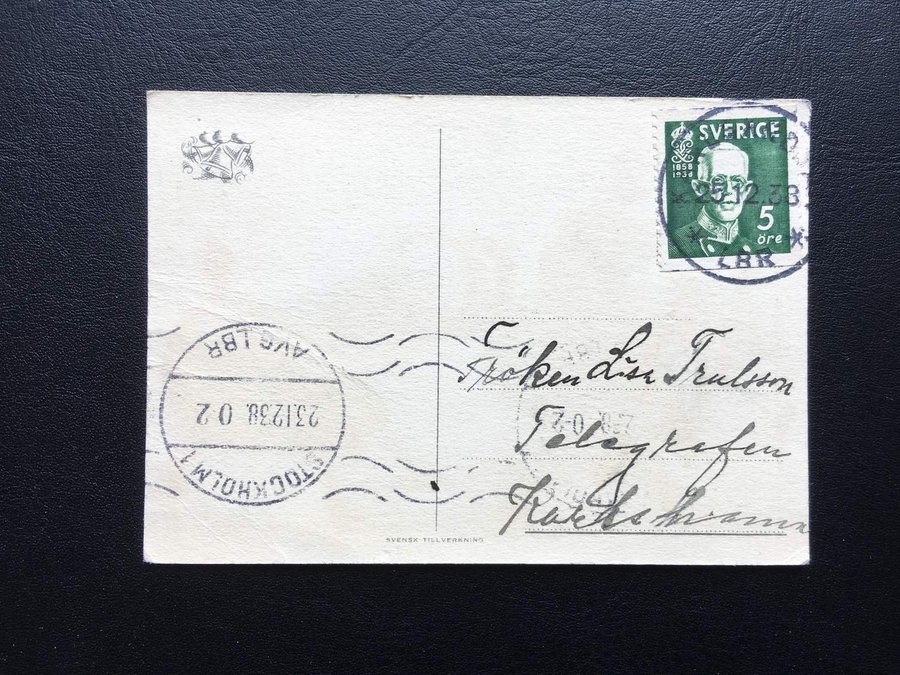 SVERIGE
1858
1938
5
öre
25.12.38
LBR
Fröken Lisa Trulsson
Telegrafen
Karlshamn
AVG LBR
23.12.38. 0-2
STOCKHOLM 1
SVENSK TILLVERKNING